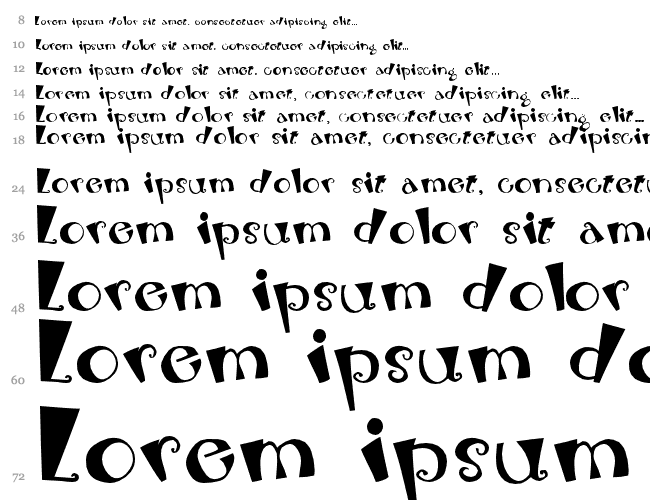 8 Lorem ipsum dolor sit amet, consectetuer adipiscing elit...
10 Lorem ipsum dolor sit amet, consectetuer adipiscing elit...
12 Lorem ipsum dolor sit amet, consectetuer adipiscing elit...
14 Lorem ipsum dolor sit amet, consectetuer adipiscing elit...
16 Lorem ipsum dolor sit amet, consectetuer adipiscing elit...
18 Lorem ipsum dolor sit amet, consectetuer adipiscin
24 Lorem ipsum dolor sit amet, consectetu
36 Lorem ipsum dolor sit am
48 Lorem ipsum dolor
60 Lorem ipsum do
72 Lorem ipsum